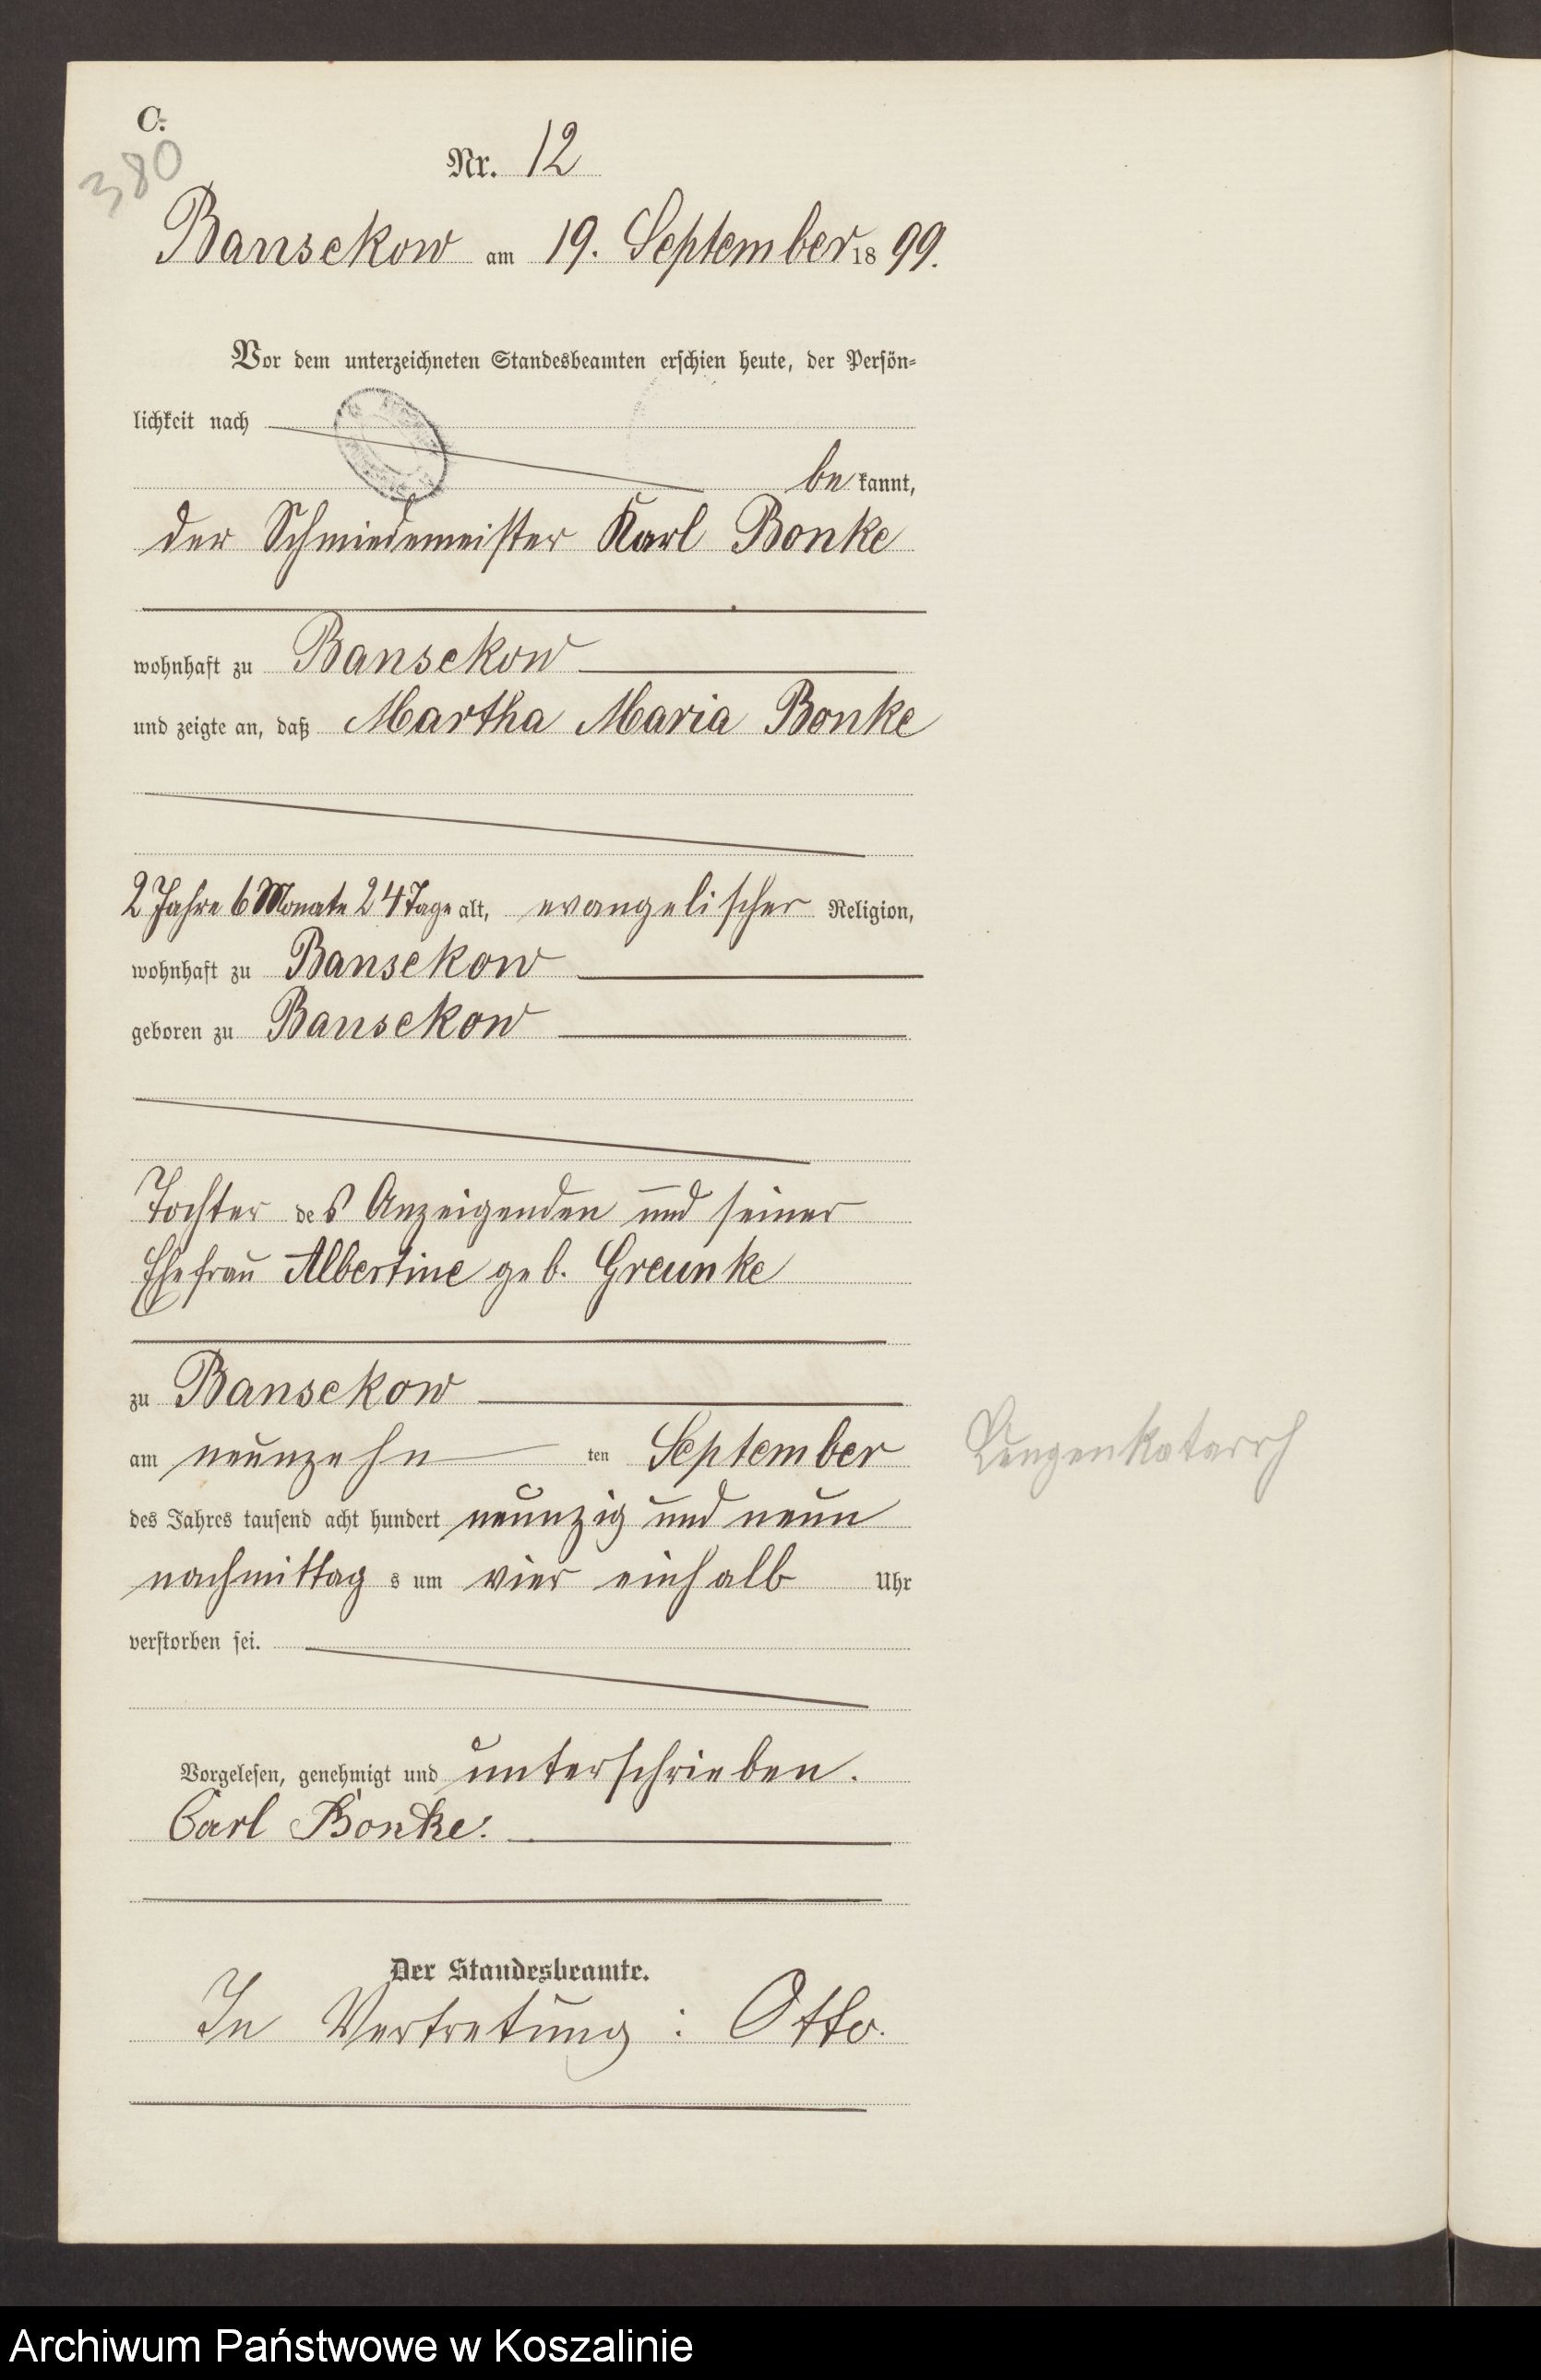 C.
380
Nr. 12
Bansekow am 19. September 1899.
Vor dem unterzeichneten Standesbeamten erschien heute, der Persön-
lichkeit nach
bekannt,
der Schmiedemeister Karl Bonke
wohnhaft zu Bansekow
und zeigte an, daß Martha Maria Bonke
2 Jahre 6 Monate 24 Tage alt, evangelischer Religion,
wohnhaft zu Bansekow
geboren zu Bansekow
Tochter des Anzeigenden und seiner
Ehefrau Albertine geb. Greunke
zu Bansekow
am neunzehn ten September
Lungenkatarrh
des Jahres tausend acht hundert neunzig und neun
nachmittags um vier einhalb Uhr
verstorben sei.
Vorgelesen, genehmigt und unterschrieben.
Carl Bonke.
Der Standesbeamte.
In Vertretung: Otto.
Archiwum Państwowe w Koszalinie